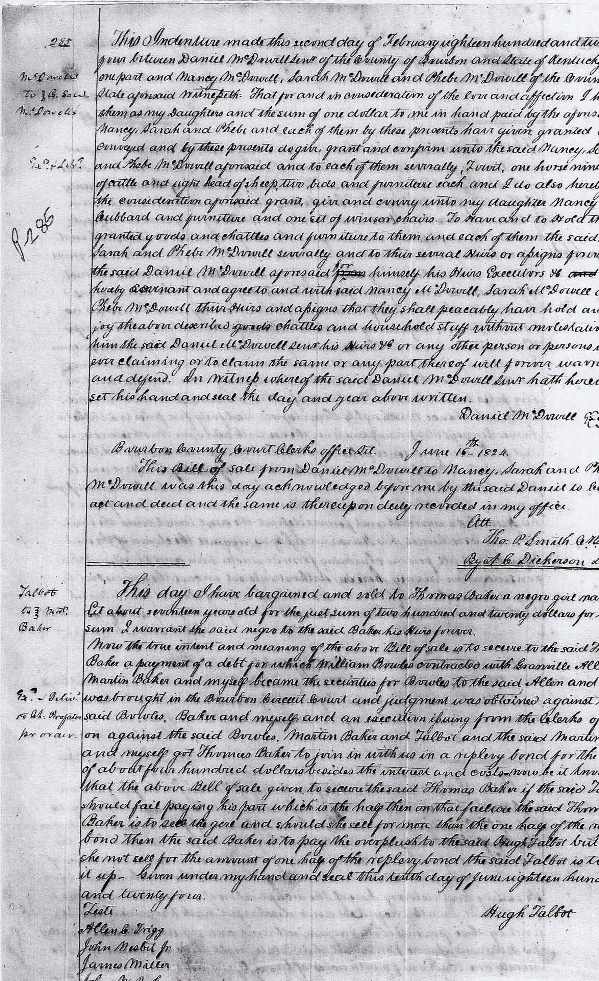 285
This Indenture made this second day of February eighteen hundred and
four between Daniel McDowell Senr of the County of Bourbon and State of Kentucky
one part and Nancy McDowell, Sarah McDowell and Phebe McDowell of the
McDowell
To
McDowells
State aforesaid Witnesseth. That for and in consideration of the love and affection I
them as my Daughters and the sum of one dollar to me in hand paid by the
Nancy, Sarah and Phebe and each of them by these presents have given granted
Conveyed and by these presents do give, grant and confirm unto the said Nancy,
and Phebe McDowell aforesaid and to each of them severally, Towit, one horse nine
of cattle and eight head of sheep, two beds and furniture each and I do also
the consideration aforesaid grant, give and convey unto my daughter Nancy
Cubbard and furniture and one set of winsor chairs. To Have and to Hold
p 285
granted goods and chattles and furniture to them and each of them the said
Sarah and Phebe McDowell severally and to their several Heirs or assigns
the said Daniel McDowell aforesaid himself his Heirs Executors &c and
hereby covenant and agree to and with said Nancy McDowell, Sarah McDowell
Phebe McDowell their Heirs and assigns that they shall peacably have hold
joy the above described goods chattles and household stuff without
him the said Daniel McDowell Senr his Heirs &c or any other person or persons
ever claiming or to claim the same or any part thereof will forever
and defend. In Witness whereof the said Daniel McDowell Senr hath
set his hand and seal the day and year above written.
Daniel McDowell
Bourbon County Court Clerks office Sct. June 16th 1824.
This Bill of sale from Daniel McDowell to Nancy, Sarah and
McDowell was this day acknowledged before me by the said Daniel to
act and deed and the same is thereupon duly recorded in my office.
Att.
Tho. P. Smith
By C. Dickerson
Talbot
to
Baker
This day I have bargained and sold to Thomas Baker a negro girl
about seventeen years old for the just sum of two hundred and twenty dollars for
sum I warrant the said negro to the said Baker his Heirs forever.
Now the true intent and meaning of the above Bill of sale is to secure to the said
Baker a payment of a debt for which William Bowles contracted with Granville
Martin Baker and myself became the securities for Bowles to the said Allen and
was brought in the Bourbon Circuit Court and judgment was obtained against
said Bowles, Baker and myself and an execution issuing from the Clerks
on against the said Bowles, Martin Baker and Talbot and the said
and myself got Thomas Baker to join in with us in a replevy bond for the
of about four hundred dollars besides the interest and costs now be it
that the above Bill of sale given to secure the said Thomas Baker if the said
should fail paying his part which is the half then on that failure the said
Baker is to sell the girl and should she sell for more than the one half of the
bond then the said Baker is to pay the overplush to the said Hugh Talbot but
she not sell for the amount of one half of the replevy bond the said Talbot is
it up. Given under my hand and seal this tenth day of June eighteen
and twenty four.
Teste
Hugh Talbot
Allen C. Trigg
John Nesbit Jr
James Miller